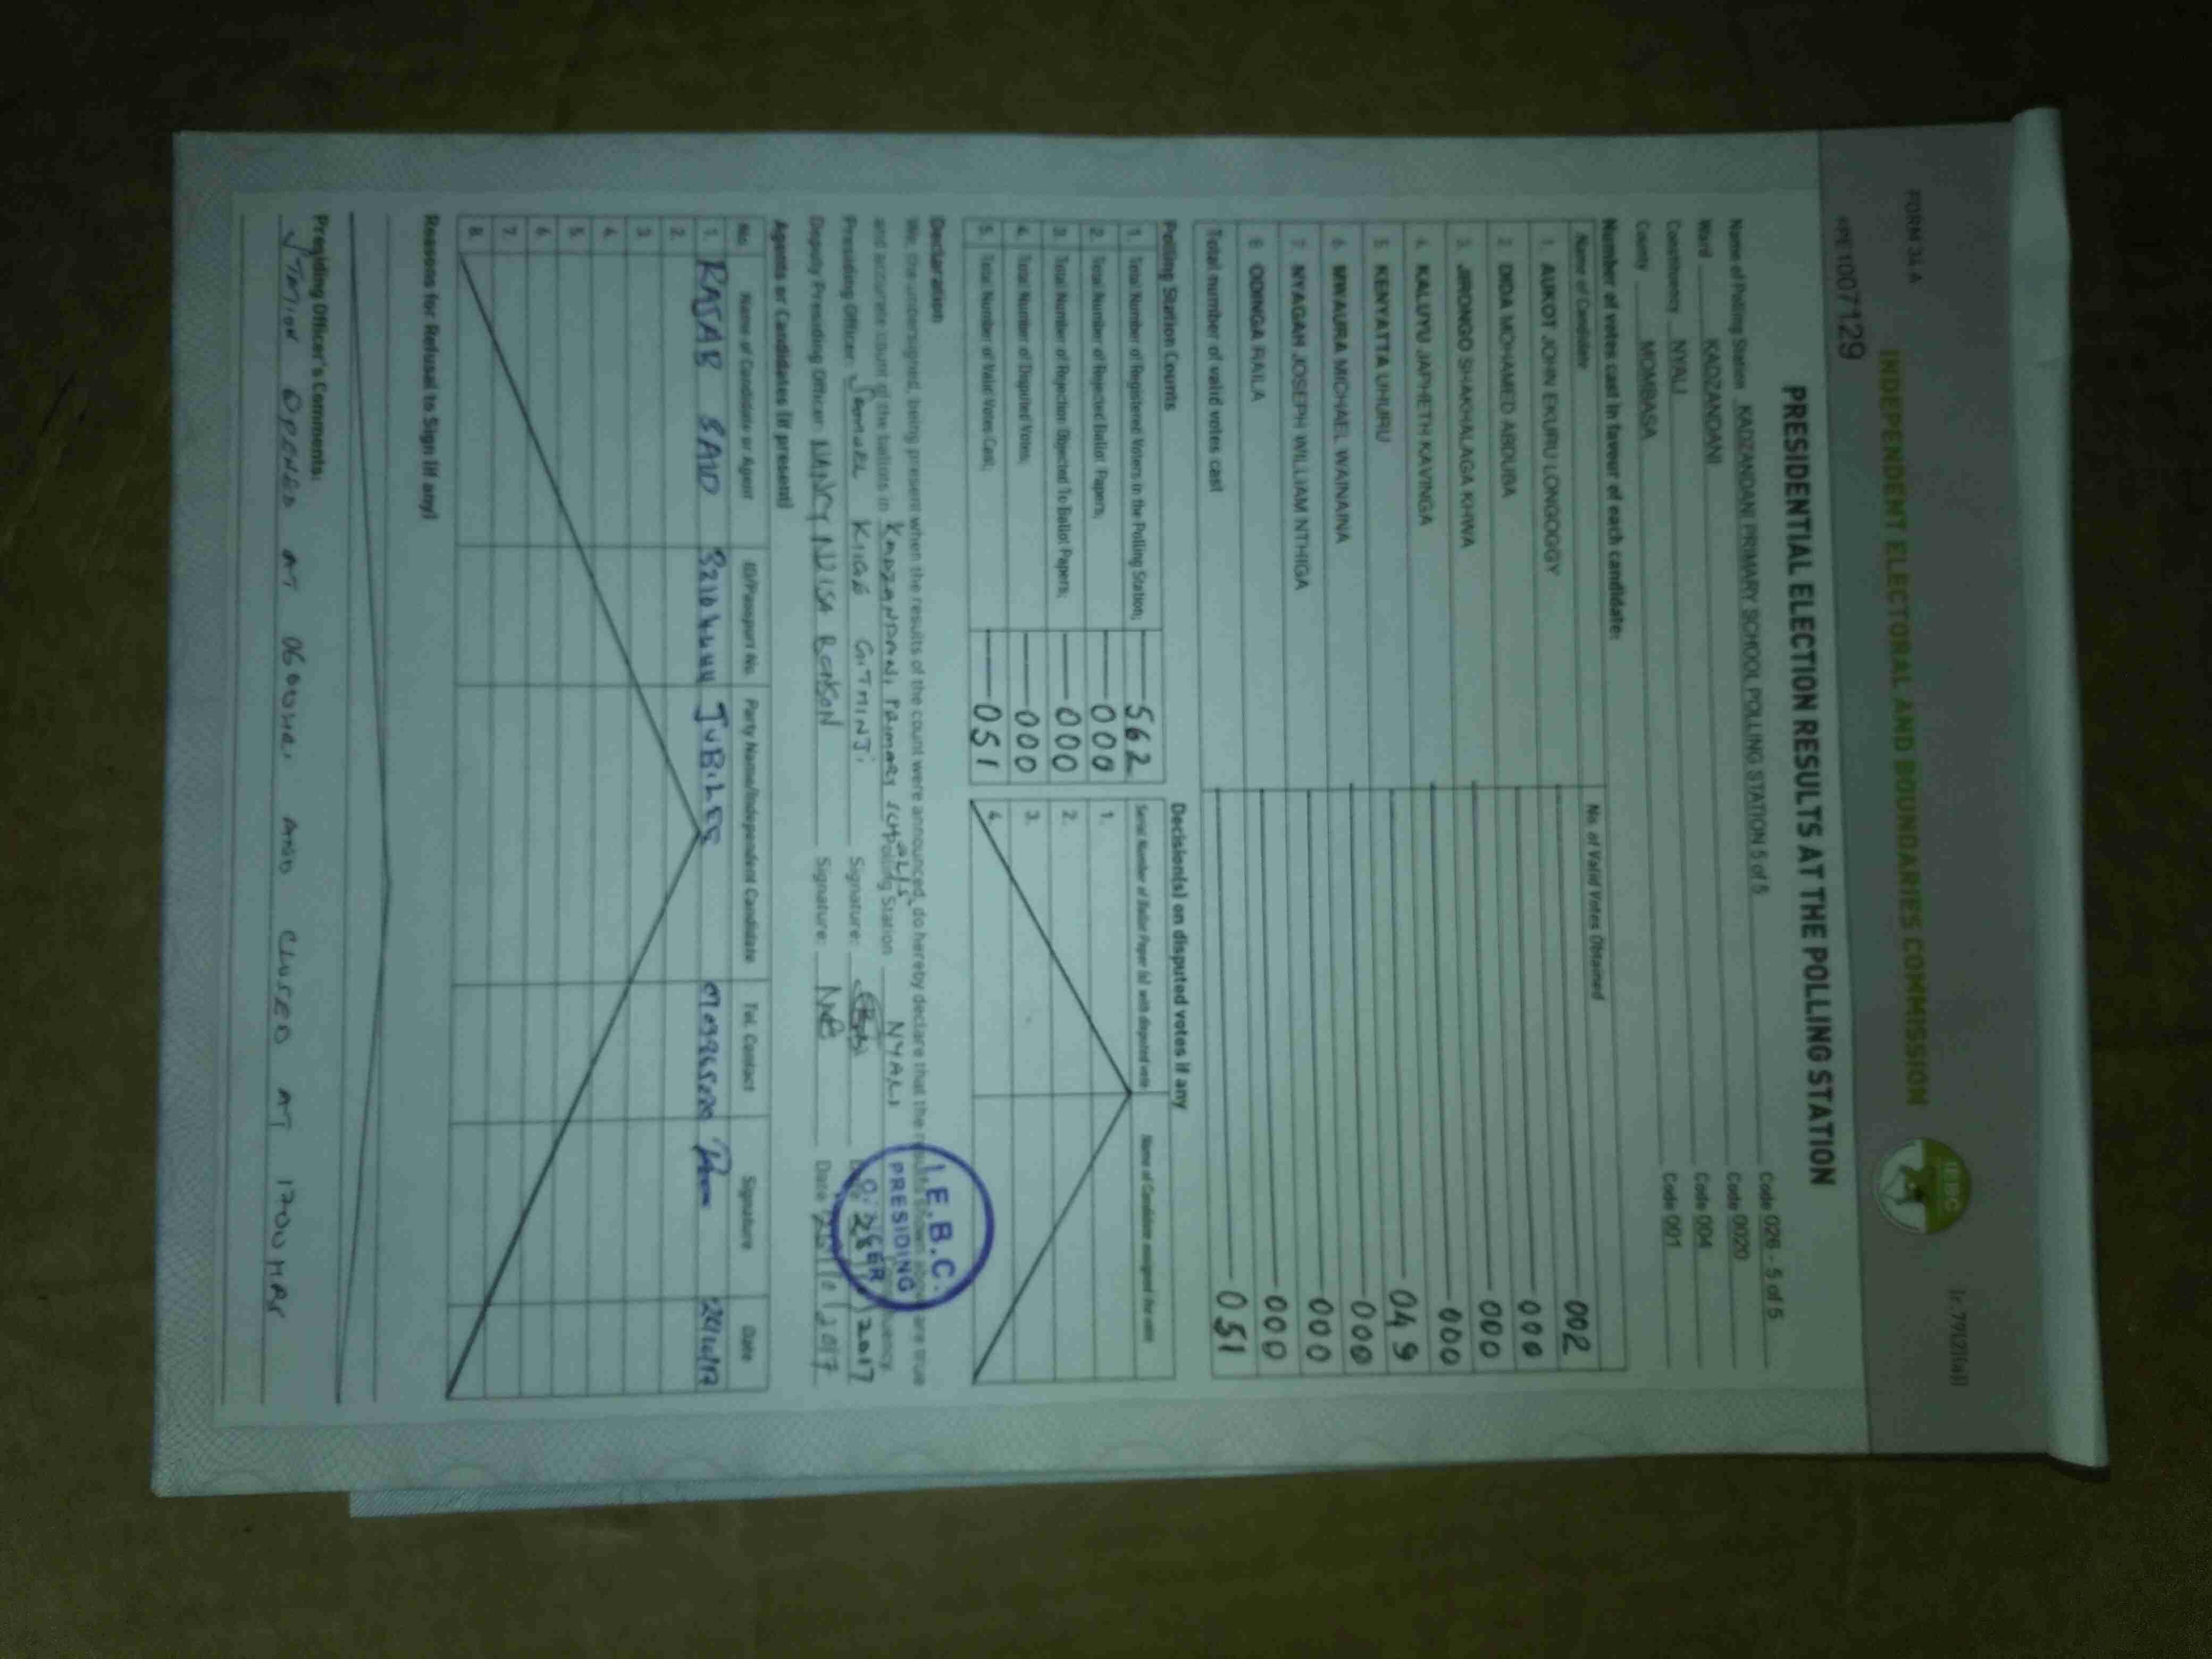 FORM 34A
INDEPENDENT ELECTORAL AND BOUNDARIES COMMISSION
IEBC
PRESIDENTIAL ELECTION RESULTS AT THE POLLING STATION
Name of Polling Station KADZANDANI PRIMARY SCHOOL POLLING STATION 5 of 5 Code 026 - 5 of 5
Ward KADZANDANI Code 0020
Constituency NYALI Code 004
County MOMBASA Code 001
Number of votes cast in favour of each candidate:
Name of Candidate No. of Valid Votes Obtained
1. AUKOT JOHN EKURU LONGOGGY 002
2. DIDA MOHAMED ABDUBA 000
3. JIRONGO SHAKHALAGA KHWA 000
4. KALUYU JAPHETH KAVINGA 000
5. KENYATTA UHURU 049
6. MWAURA MICHAEL WAINAINA 000
7. NYAGAH JOSEPH WILLIAM NTHIGA 000
8. ODINGA RAILA 000
Total number of valid votes cast 051
Polling Station Counts
1. Total Number of Registered Voters in the Polling Station; 562
2. Total Number of Rejected Ballot Papers; 000
3. Total Number of Rejection Objected To Ballot Papers; 000
4. Total Number of Disputed Votes; 000
5. Total Number of Valid Votes Cast; 051
Decision(s) on disputed votes if any
Serial Number of Ballot Paper (s) with disputed vote Name of Candidate assigned the vote
1.
2.
3.
4.
Declaration
We, the undersigned, being present when the results of the count were announced, do hereby declare that the results shown above are true
and accurate count of the ballots in KADZANDANI PRIMARY SCH Polling Station NYALI Constituency.
Presiding Officer: KIGE GITHINJI Signature: Date 2017
Deputy Presiding Officer: NANCY Signature: Date 26/10/2017
I.E.B.C.
PRESIDING
OFFICER
Agents or Candidates (if present)
No. Name of Candidate or Agent ID/Passport No. Party Name/Independent Candidate Tel. Contact Signature Date
1. RAJAB SAID JUBILEE
2.
3.
4.
5.
6.
7.
8.
Reasons for Refusal to Sign (if any)
Presiding Officer's Comments:
STATION OPENED AT 0600HRS AND CLOSED AT 1700HRS